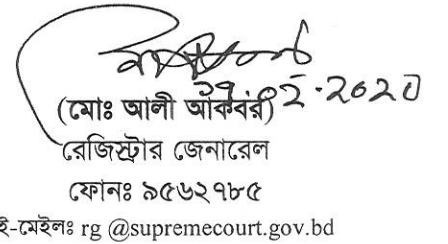 ২৭.০২-২০২০
(মোঃ আলী আকবর)
রেজিস্ট্রার জেনারেল
ফোনঃ ৯৫৬২৭৮৫
ই-মেইলঃ rg @supremecourt.gov.bd